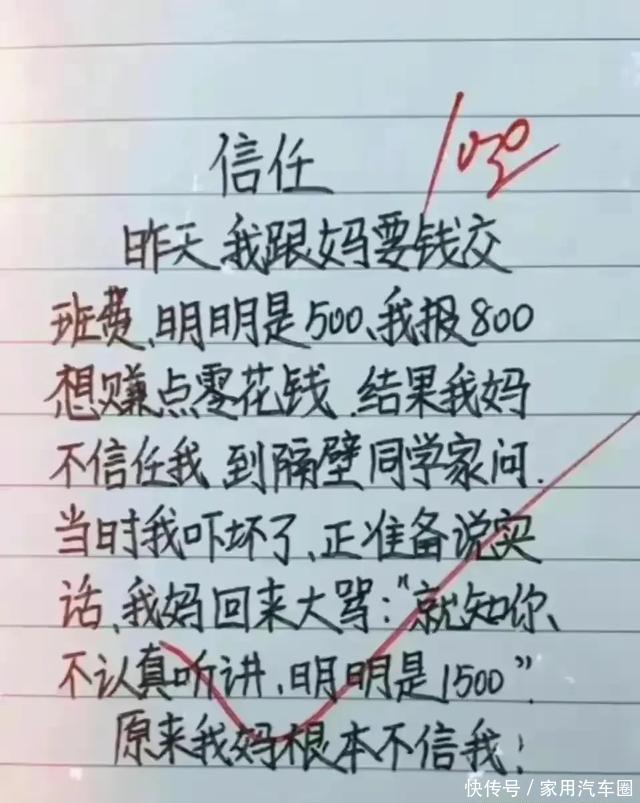 信任
昨天我跟妈要钱交
班费、明明是500、我报800
想赚点零花钱.结果我妈
不信任我 到隔壁同学家问.
当时我吓坏了、正准备说实
话、我妈回来大骂:“就知你、
不认真听讲、明明是1500”.
原来我妈根本不信我!
快传号/家用汽车圈